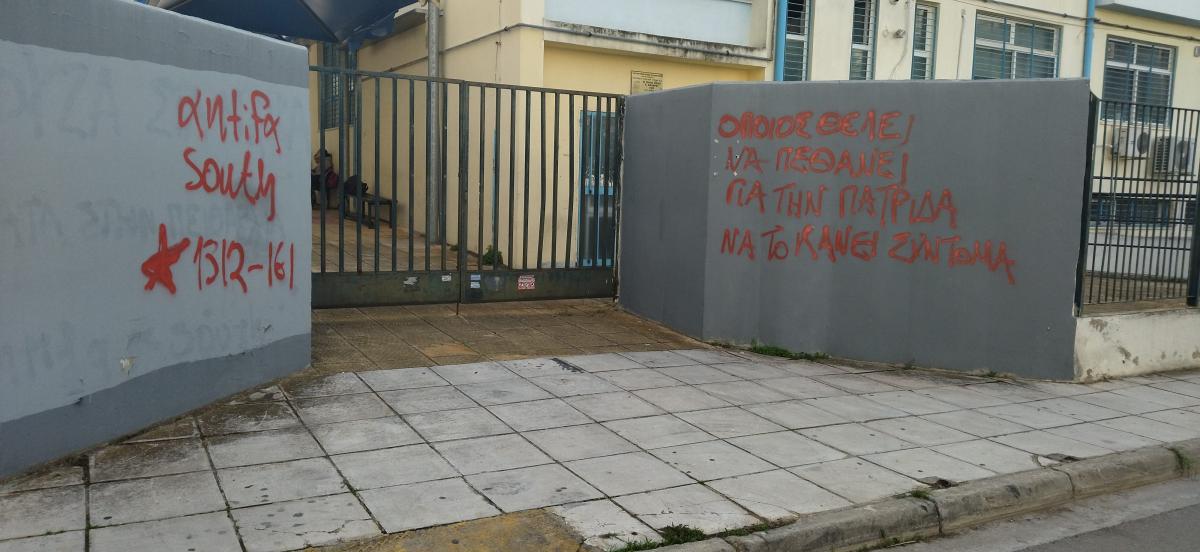 antifa
south
1312-161
ΟΠΟΙΟΣ ΘΕΛΕΙ
ΝΑ ΠΕΘΑΝΕΙ
ΓΙΑ ΤΗΝ ΠΑΤΡΙΔΑ
ΝΑ ΤΟ ΚΑΝΕΙ ΣΥΝΤΟΜΑ